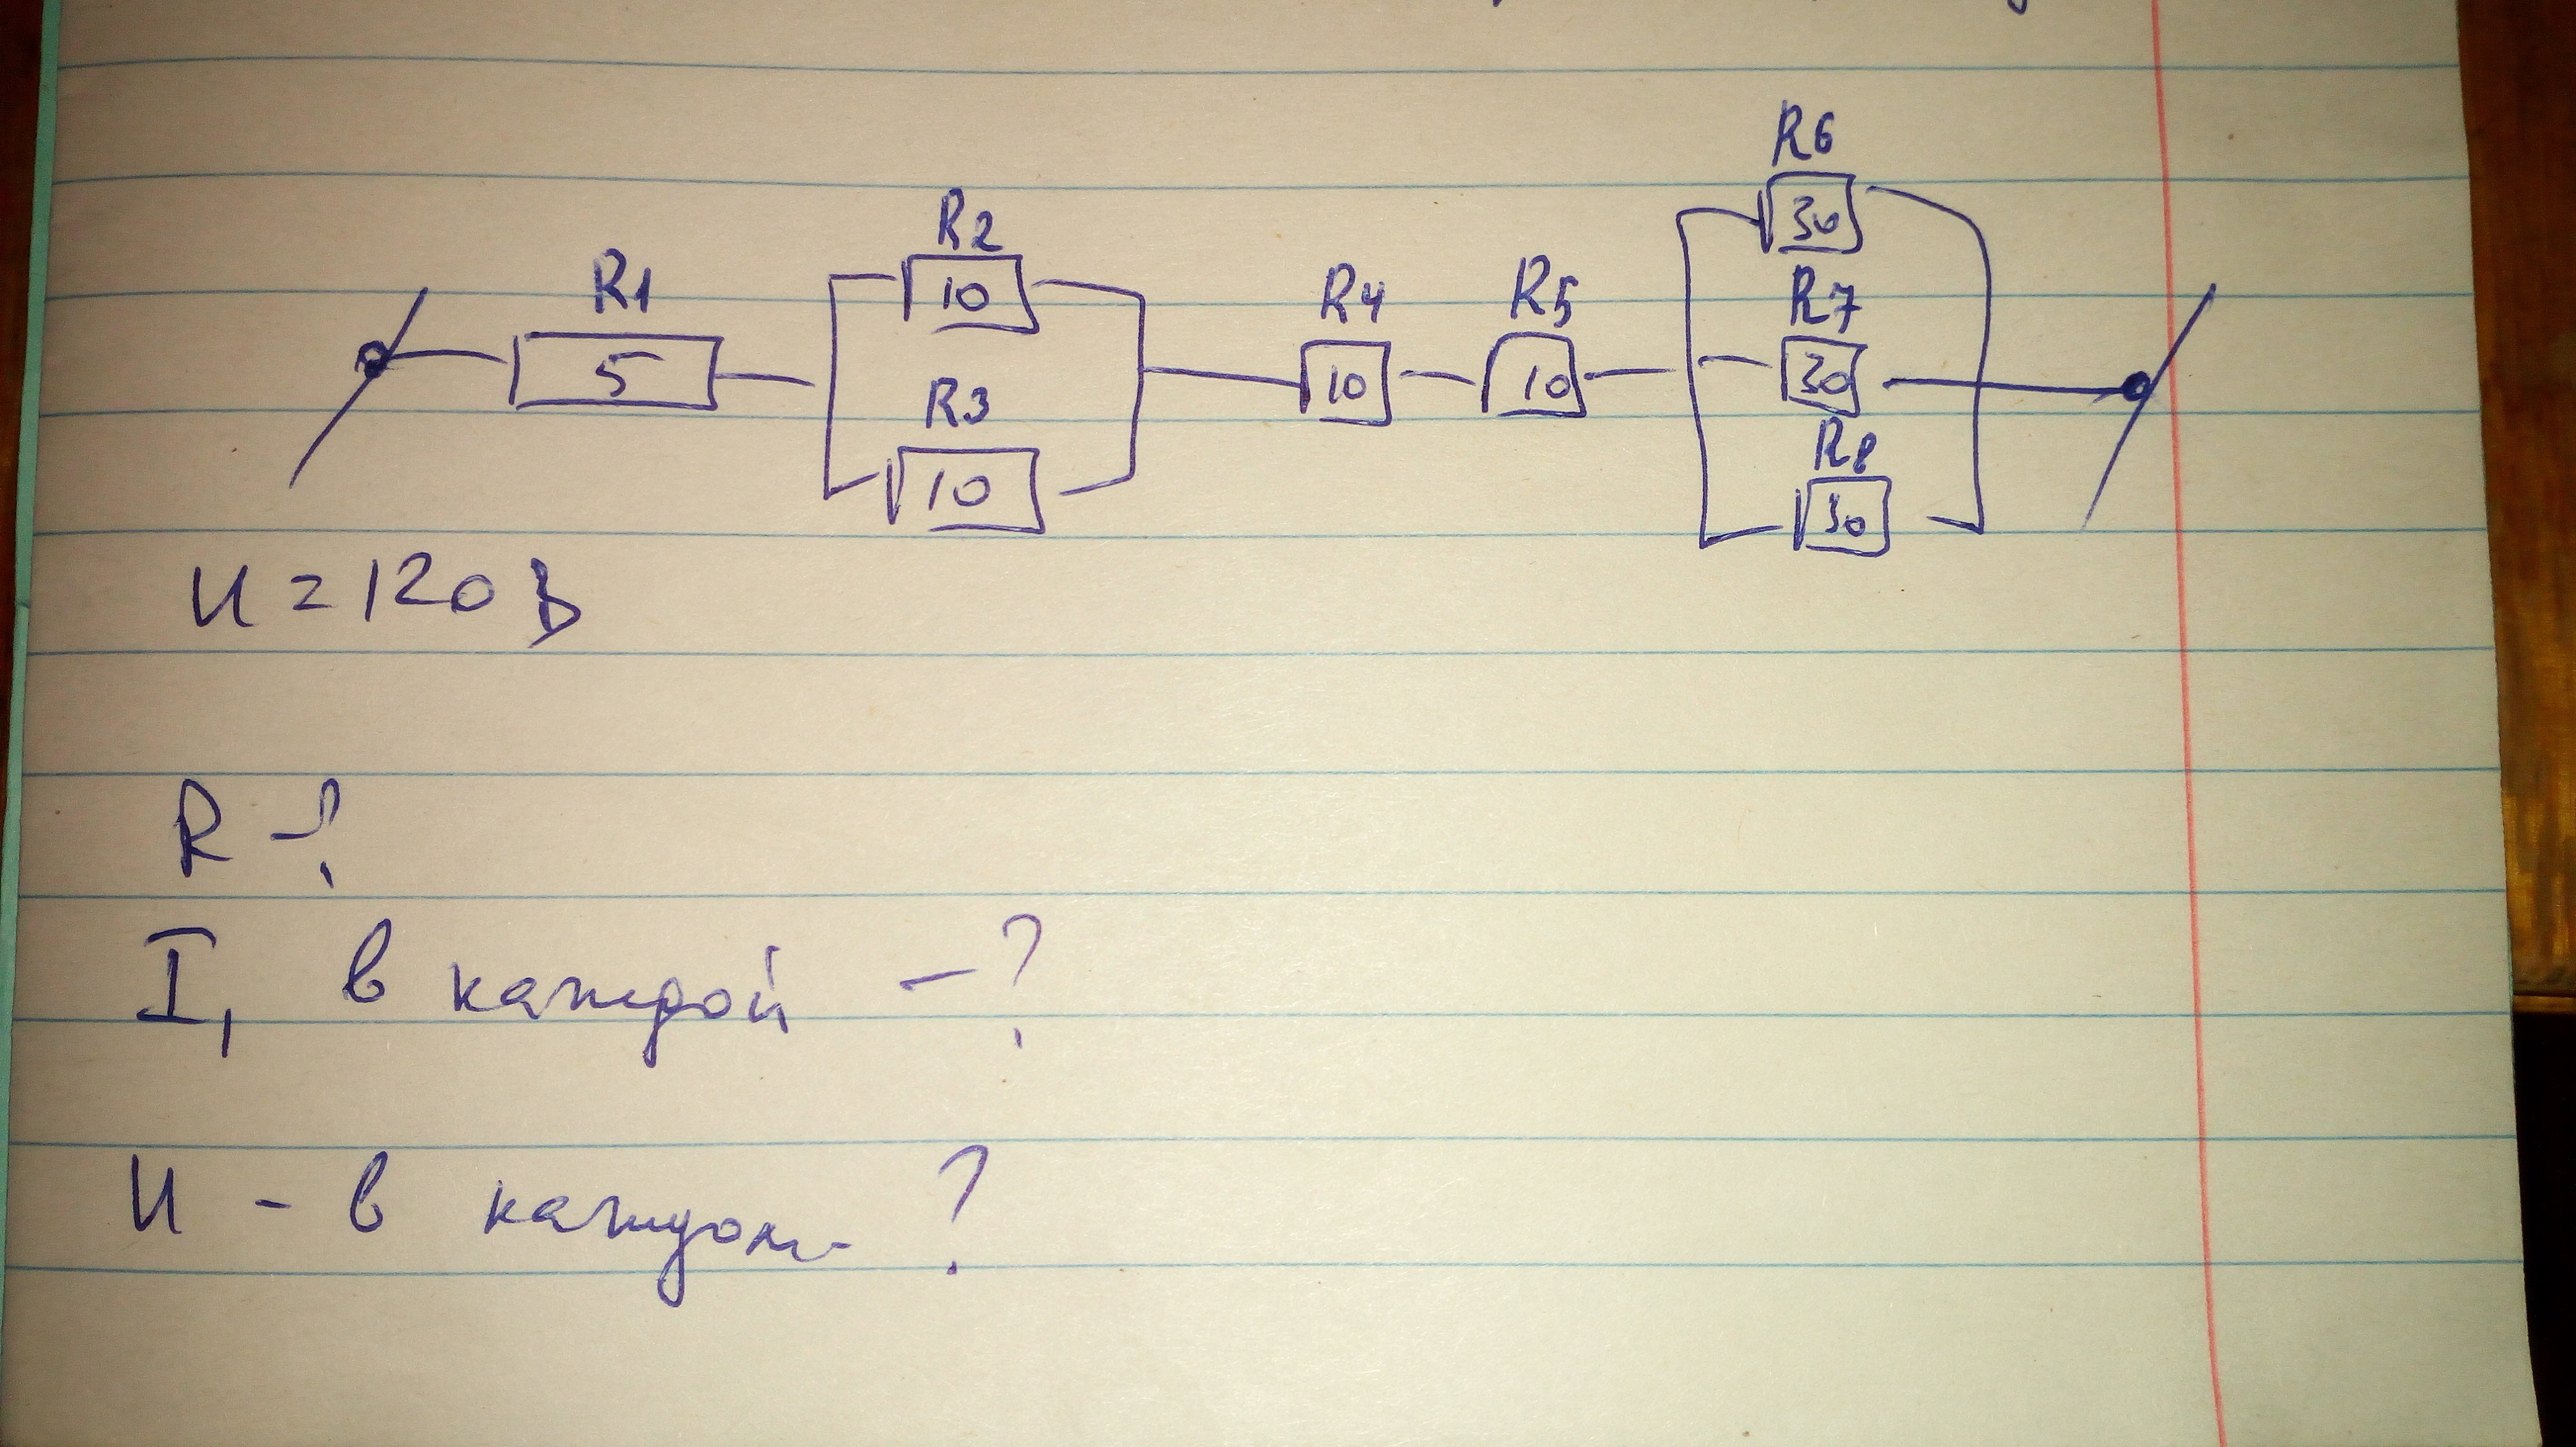 R6
30
R2
10
R1
5
R4
10
R5
10
R7
30
R3
10
R8
30
U = 120 В
R - ?
I, в каждой - ?
U - в каждом ?